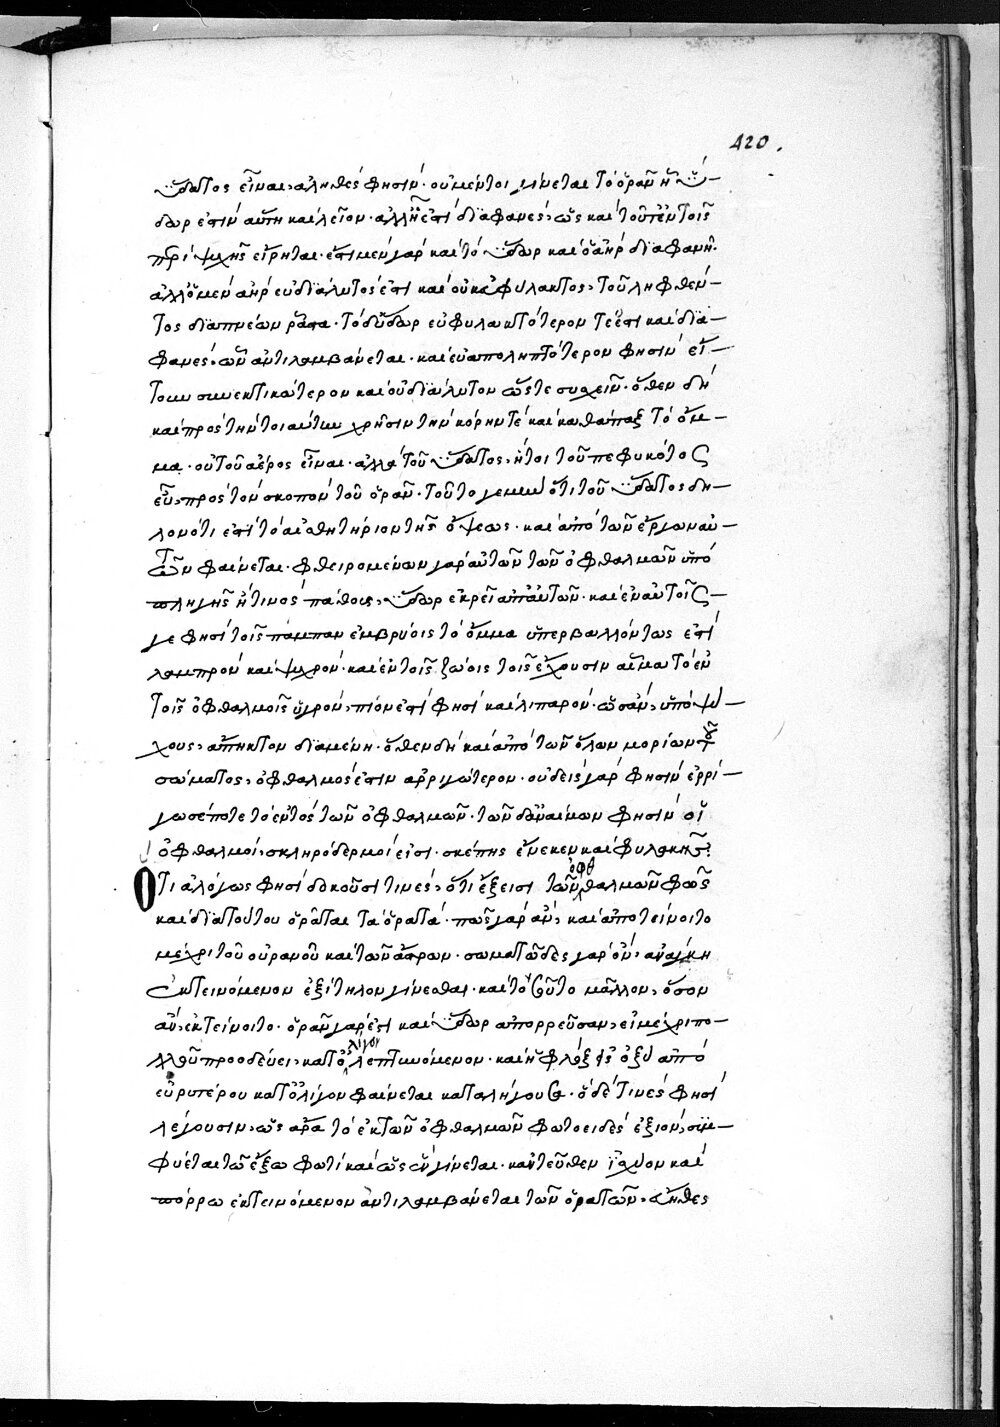 420.
ὕδατος εἶναι, ἀληθές φησιν· οὐ μέντοι γίνεται τὸ ὁρᾶν ᾗ ὕ-
δωρ ἐστὶν αὕτη καὶ λεῖον· ἀλλ' ᾗ ἐστὶ διαφανές, ὡς καὶ τοῦτ' ἐν τοῖς
περὶ ψυχῆς εἴρηται· ἔστι μὲν γὰρ καὶ τὸ ὕδωρ καὶ ὁ ἀὴρ διαφανῆ·
ἀλλ' ὁ μὲν ἀὴρ εὐδιάλυτός ἐστι καὶ οὐκ εὐφύλακτος, τοῦ ληφθέν-
τος διαπνέων ῥᾷστα· τὸ δ' ὕδωρ εὐφυλακτότερόν τέ ἐστι καὶ δια-
φανές, ὧν ἀντιλαμβάνεται· καὶ εὐαποληπτότερον φησὶν εἴ-
τουν συνεκτικώτερον καὶ οὐ διαλυτον ὥστε συσχεῖν· ὅθεν δὴ
καὶ πρὸς τὴν τοιαύτην χρῆσιν τὴν κόρην τὲ καὶ καθάπαξ τὸ ὄμ-
μα· οὐ τοῦ ἀέρος εἶναι· ἀλλὰ τοῦ ὕδατος, ἤτοι τοῦ πεφυκότος
εὖ, πρὸς τὸν σκοπὸν τοῦ ὁρᾶν· τοῦτο γεμὴν ὅτι τοῦ ὕδατος δη-
λονότι ἐστὶ τὸ αἰσθητήριον τῆς ὄψεως· καὶ ἀπὸ τῶν ἔργων αὐ-
τῶν φαίνεται· φθειρομένων γὰρ αὐτῶν τῶν ὀφθαλμῶν ὑπὸ
πληγῆς ἤ τινος πάθους, ὕδωρ ἐκρεῖ ἀπ' αὐτῶν· καὶ ἐν αὐτοῖς
γε φησὶ τοῖς πάμπαν ἐμβρύοις τὸ ὄμμα ὑπερβαλλόντως ἐστὶ
λαμπρὸν καὶ ψυχρόν· καὶ ἐν τοῖς ζῴοις τοῖς ἔχουσιν αἷμα τὸ ἐν
τοῖς ὀφθαλμοῖς ὑγρόν, πῖόν ἐστι φησὶ καὶ λιπαρόν· ὡσὰν, ὑπὸ ψύ-
χους, ἄπηκτον διαμένῃ· ὅθεν δὴ καὶ ἀπὸ τῶν ὅλων μορίων τοῦ
σώματος, ὀφθαλμός ἐστιν ἀρριγώτερον· οὐδεὶς γάρ φησιν ἐρρί-
γωσέ ποτε τὸ ἐντὸς τῶν ὀφθαλμῶν· τῶν δ' ἀναίμων φησὶν οἱ
ὀφθαλμοὶ, σκληρόδερμοί εἰσι· σκέπης ἕνεκεν καὶ φυλακῆς:
Ὅτι ἀλόγως φησὶ δοκοῦσί τινες, ὅτι ἔξεισι τῶν ὀφθαλμῶν φῶς
καὶ διὰ τούτου ὁρᾶται τὰ ὁρατά· πῶς γὰρ ἂν, καὶ ἀποτείνοιτο
μέχρι τοῦ οὐρανοῦ καὶ τῶν ἄστρων· σωματῶδες γὰρ ὂν, ἀνάγκη
ἐκτεινόμενον ἐξίτηλον γίνεσθαι· καὶ τοσοῦτο μᾶλλον, ὅσον
ἂν, ἐκτείνοιτο· ὁρᾶν γὰρ ἐστι καὶ ὕδωρ ἀπορρεῦσαν, εἰ μέχρι πο-
λλοῦ προοδεύει, κατ' ὀλίγον λεπτυνόμενον· καὶ ἡ φλὸξ εἰς ὀξὺ ἀπὸ
εὐρυτέρου κατ' ὀλίγον φαίνεται καταλήγουσα· ὁ δέ τινές φησι
λέγουσιν, ὡς ἄρα τὸ ἐκ τῶν ὀφθαλμῶν φωτοειδὲς ἐξιὸν, συμ-
φύεται τῷ ἔξω φωτὶ καὶ ὡς ἓν γίνεται· κἀντεῦθεν ἰσχύον καὶ
πόρρω ἐκτεινόμενον ἀντιλαμβάνεται τῶν ὁρατῶν, εὔηθες